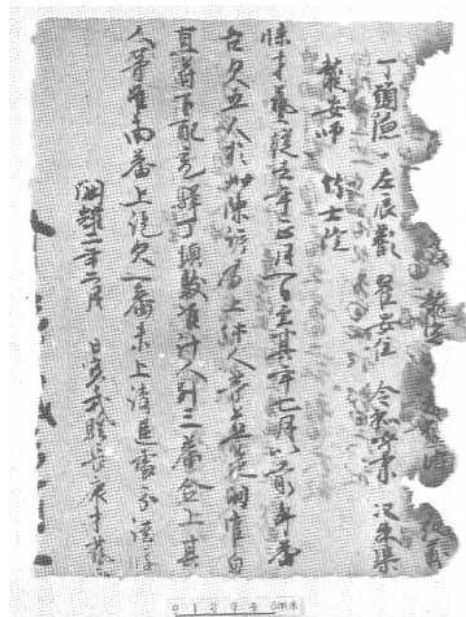 丁頭隱 左辰歡 翟安住 令狐呼末 汜朱渠
龍安師 竹士隆
牒才藝從去年正月一日至其年七月以前每番
各欠五人於州陳訴為上件人等並是闕官白
直符下配充驛丁填數准計人別三番合上其
人等准兩番上訖欠一番未上請追處分謹牒
開耀二年二月 日寧戎驛長康才藝
0 1 2 3 4 5厘米